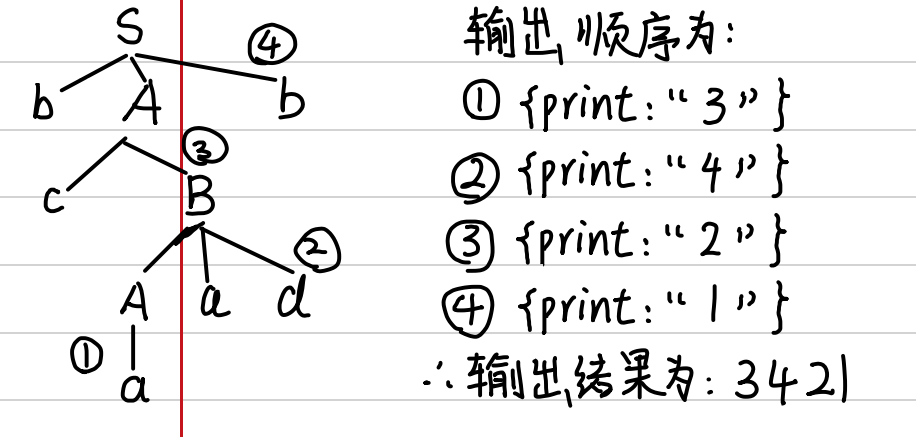 S
④
b A b
③
c B
②
A a d
①
a
输出顺序为:
① {print:“3”}
② {print:“4”}
③ {print:“2”}
④ {print:“1”}
∴输出结果为:3421